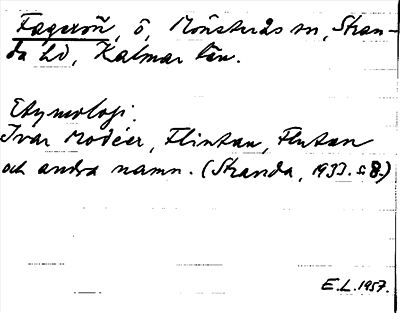 Fageröñ, ö, Mönsterås sn, Stran-
da hd, Kalmar län.
Etymologi.
Ivar Modéer, Flintan, Flutan
och andra namn. (Stranda, 1933. s. 8.)
E.L. 1957.